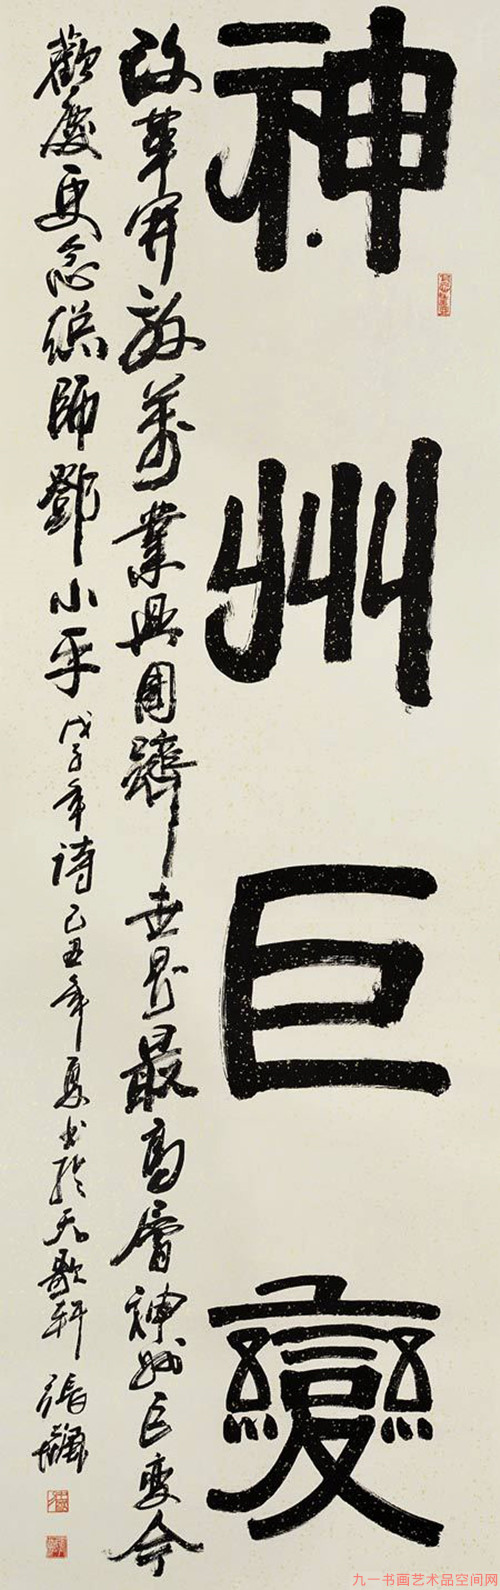 神州巨變
改革開放萬業興國躋世界最高層神州巨變今
歡慶更念總師鄧小平戊子年詩己丑年夏書於天歌軒張
九一书画艺术品空间网